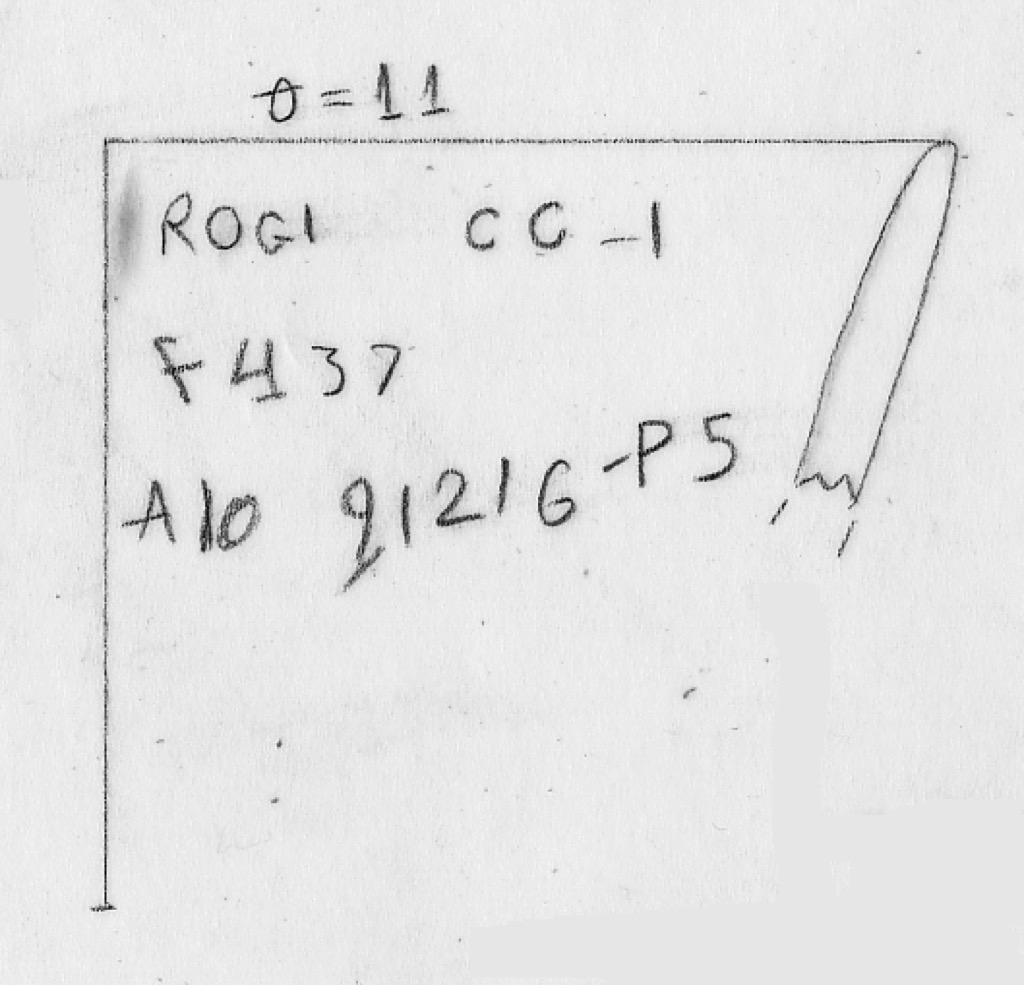 θ=11
ROGI CC-1
F437
A10 91216-P5